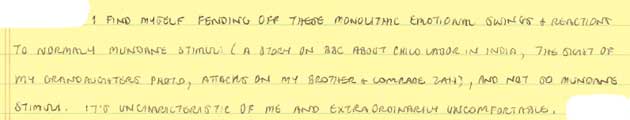 I FIND MYSELF FENDING OFF THESE MONOLITHIC EMOTIONAL SWINGS + REACTIONS
TO NORMALLY MUNDANE STIMULI (A STORY ON BBC ABOUT CHILD LABOR IN INDIA, THE SIGHT OF
MY GRANDAUGHTERS PHOTO, ATTACKS ON MY BROTHER + COMRADE ZAH), AND NOT SO MUNDANE
STIMULI. IT'S UNCHARACTERISTIC OF ME AND EXTRAORDINARILY UNCOMFORTABLE.